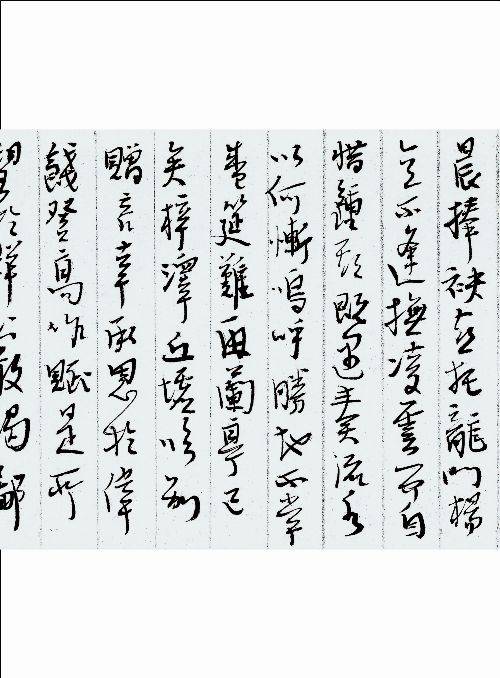 晨捧袂喜托龍門楊
意不逢撫凌雲而自
惜鍾期既遇奏流水
以何慚嗚呼勝地不常
盛筵難再蘭亭已
矣梓澤丘墟臨別
贈言幸承恩於偉
餞登高作賦是所
望於群公敢竭鄙